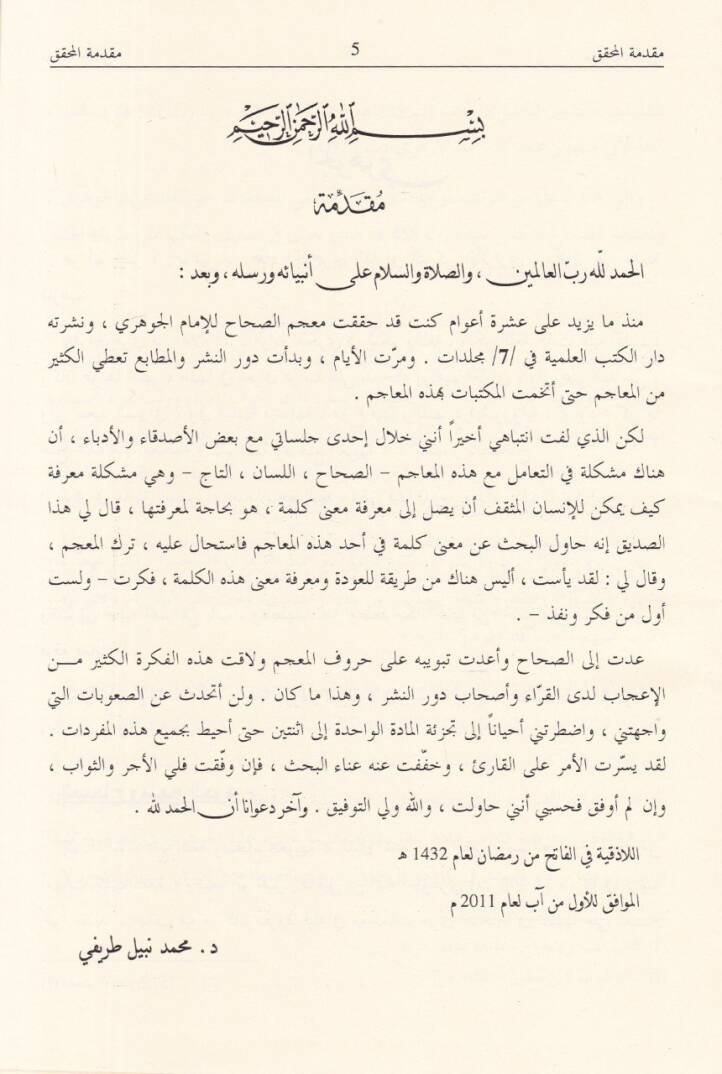 مقدمة المحقق 5 مقدمة المحقق
بِسْمِ اللَّهِ الرَّحْمَٰنِ الرَّحِيمِ
مُقَدِّمَة
الحمد لله ربّ العالمين ، والصلاة والسلام على أنبيائه ورسله ، وبعد :
منذ ما يزيد على عشرة أعوام كنت قد حققت معجم الصحاح للإمام الجوهري ، ونشرته
دار الكتب العلمية في /7/ مجلدات . ومرّت الأيام ، وبدأت دور النشر والمطابع تعطي الكثير
من المعاجم حتى أتخمت المكتبات بهذه المعاجم .
لكن الذي لفت انتباهي أخيراً أنني خلال إحدى جلساتي مع بعض الأصدقاء والأدباء ، أن
هناك مشكلة في التعامل مع هذه المعاجم – الصحاح ، اللسان ، التاج – وهي مشكلة معرفة
كيف يمكن للإنسان المثقف أن يصل إلى معرفة معنى كلمة ، هو بحاجة لمعرفتها ، قال لي هذا
الصديق إنه حاول البحث عن معنى كلمة في أحد هذه المعاجم فاستحال عليه ، ترك المعجم ،
وقال لي : لقد يأست ، أليس هناك من طريقة للعودة ومعرفة معنى هذه الكلمة ، فكرت – ولست
أول من فكر ونفذ – .
عدت إلى الصحاح وأعدت تبويبه على حروف المعجم ولاقت هذه الفكرة الكثير مـــن
الإعجاب لدى القرّاء وأصحاب دور النشر ، وهذا ما كان . ولن أتحدث عن الصعوبات التي
واجهتني ، واضطرتني أحياناً إلى تجزئة المادة الواحدة إلى اثنتين حتى أحيط بجميع هذه المفردات .
لقد يسّرت الأمر على القارئ ، وخفّفت عنه عناء البحث ، فإن وفّقت فلي الأجر والثواب ،
وإن لم أوفق فحسبي أنني حاولت ، والله ولي التوفيق . وآخر دعوانا أن الحمد لله .
اللاذقية في الفاتح من رمضان لعام 1432 هـ
الموافق للأول من آب لعام 2011 م
د. محمد نبيل طريفي